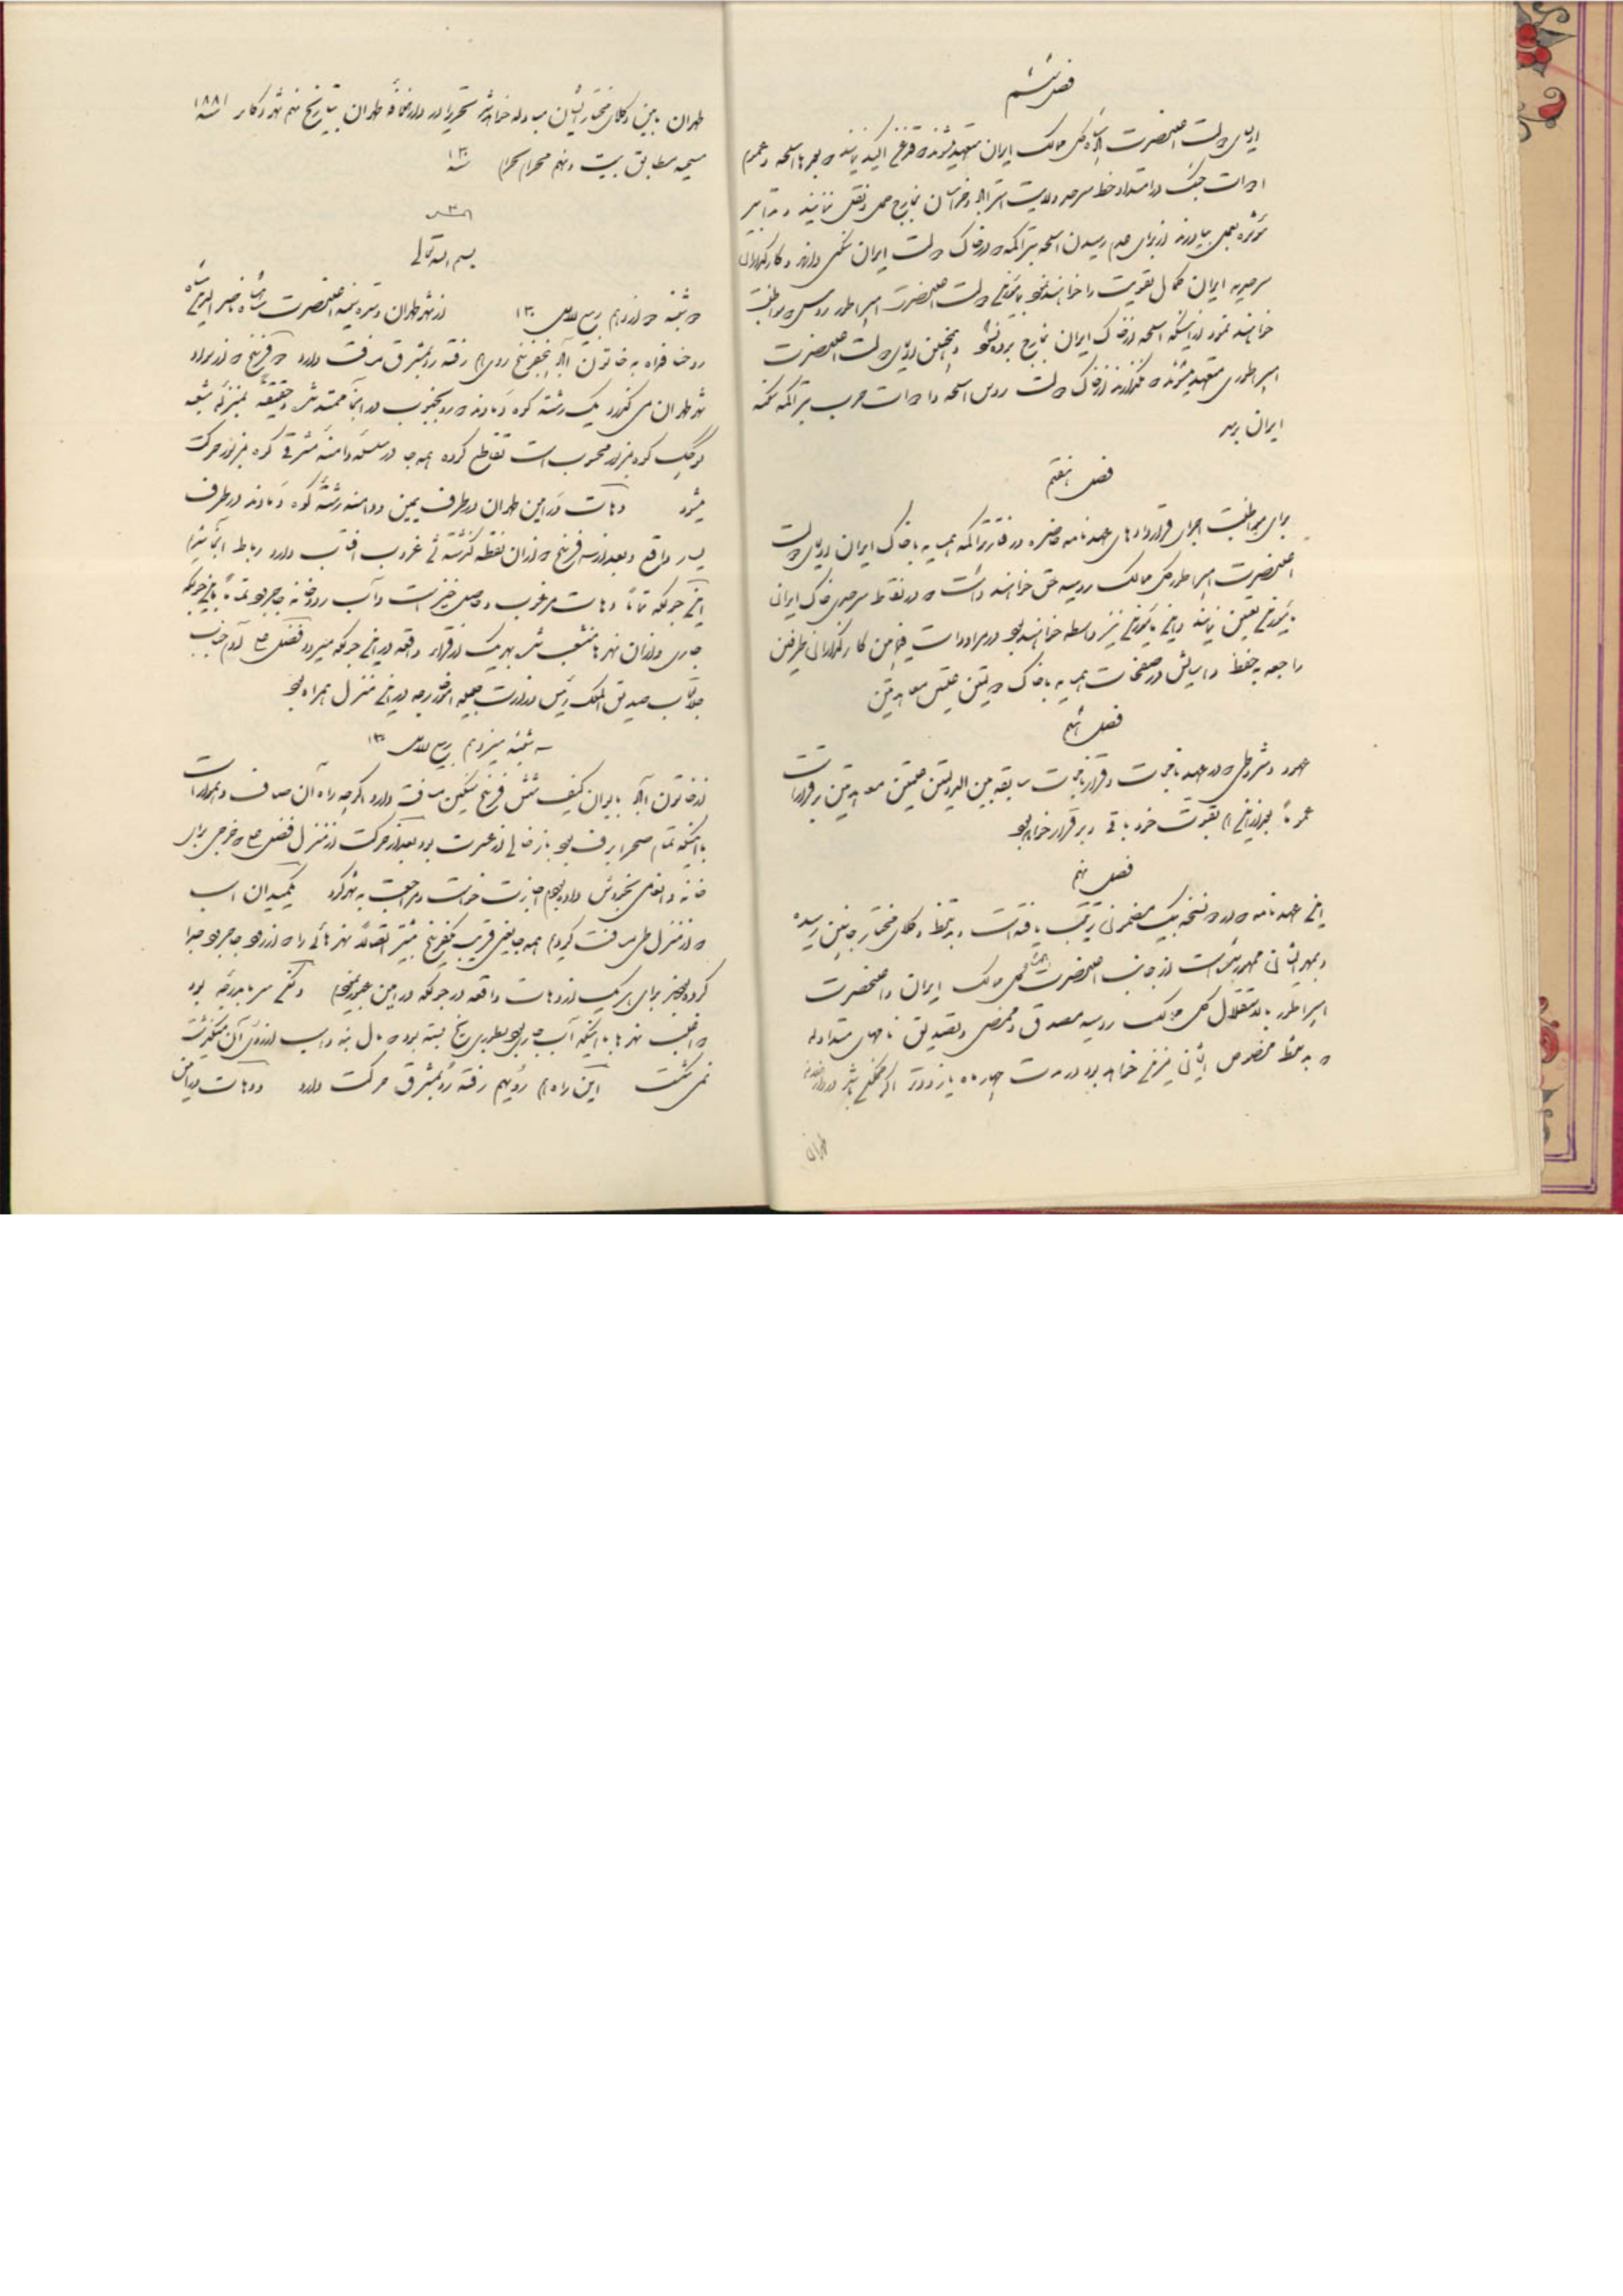 فصل ششم
اولیای دولت اعلیحضرت شاهنشاه کل ممالک ایران متعهد میشوند که قدغن اکید نمایند که بهیچوجه اسلحه و عموم
ادوات جنگ در امتداد خط سرحد ولایت استراباد و خراسان بخارج حمل و نقل ننمایند و تدابیر
مؤثره بعمل بیاورند از برای عدم رسیدن اسلحه بتراکمه که در خاک دولت ایران سکنی دارند و کارگذاران
سرحدیه ایران کمال تقویت را خواهند نمود با مأمورین دولت اعلیحضرت امپراطور روس که مواظبت
خواهند نمود از اینکه اسلحه از خاک ایران بخارج برده نشود و همچنین اولیای دولت اعلیحضرت
امپراطوری متعهد میشوند که نگذارند از خاک دولت روس اسلحه و ادوات حرب بتراکمه سکنه
ایران برسد
فصل هفتم
برای مواظبت اجرای قراردادهای عهدنامه حاضره و در رفتار تراکمه همسایه با خاک ایران اولیای دولت
اعلیحضرت امپراطور کل ممالک روسیه حق خواهند داشت که در نقاط سرحدی خاک ایران
مأمورین تعیین نمایند و این مأمورین نیز واسطه خواهند بود در مراودات فیمابین کارگذاران طرفین
راجعه به حفظ و آسایش در صفحات همسایه با خاک دولتین علیتین معاهدتین
فصل هشتم
عهود و شروطی که در عهدنامجات و قرارنامجات سابقه بین الدولتین علیتین معاهدتین برقرار است
عموماً بقوت خود باقی و برقرار خواهد بود
فصل نهم
این عهدنامه که در دو نسخه بیک مضمون ترتیب یافته است و بدستخط وکلای مختار جانبین رسیده
و بمهر ایشان ممهور شده است از جانب اعلیحضرت شاهنشاه کل ممالک ایران و اعلیحضرت
امپراطور بالاستقلال کل ممالک روسیه مصدق و ممضی و تصدیق نامهای متداوله
که بدستخط مخصوص ایشان مزین خواهد بود در مدت چهار ماه یا زودتر اگر ممکن باشد در دارالخلافه
طهران
طهران مابین وکلای مختار ایشان مبادله خواهد شد تحریراً در دارالخلافه طهران بتاریخ نهم شهر دکابر ۱۸۸۱ سنه
مسیحیه مطابق بیست و نهم محرم الحرام سنه
بسم الله تعالی
دوشنبه دوازدهم ربیع الاول ۱۳۰ از شهر طهران و متبوعه اعلیحضرت شاهنشاه ناصرالدین شاه
روحنا فداه به خاتون آباد رفته رو بمشرق مسافت دارد
شهر طهران می گذرد یک رشته کوه دماوند که رو بجنوب در اینجا ممتد شده و حقیقة بمنزله شعبه
کوچک کوه البرز محسوب است تقاطع کرده همه جا در سلسله دامنه مشرقی کوه مزبور حرکت
میشود دهات ورامین طهران در طرف یمین و دامنه رشته کوه دماوند در طرف
یسار واقع و بعد از سه فرسخ که از آن نقطه گذشته رو غروب آفتاب دارد
این جلگه تماماً دهات مرغوب و حاصل خیز است و آب رودخانه جاجرود تماماً باین جلگه
جاری و از آن نهرها منشعب شده بهر یک از قراء واقعه در این جلگه میرود
جلالتمآب صدیق الملک رئیس وزارت جلیله امور خارجه در این منزل همراه بود
سه شنبه سیزدهم ربیع الاول ۱۳۰
از خاتون آباد به ایوان کیف شش فرسخ سنگین مسافت دارد اگرچه راه آن صاف و هموار است
با اینکه تمام صحرا برف بود باز خالی از عسرت بود بعد از حرکت از منزل
خانه و انعامی بخودش داده بودم اجازت خواست و مراجعت به شهر کرد یکمیدان اسب
که از منزل طی مسافت کردیم همه جا یعنی قریب یکفرسخ بیشتر اتصالاً نهرهائی را که از رود جاجرود جدا
کرده برای هر یک از دهات واقعه در جلگه ورامین
که اغلب نهرها با اینکه آب جاری بود بطوری یخ بسته بود که مال بنه و اسب از روی آن میگذشت
نمی شکست این راه هم رویهم رفته رو بمشرق حرکت دارد و دهات ورامین